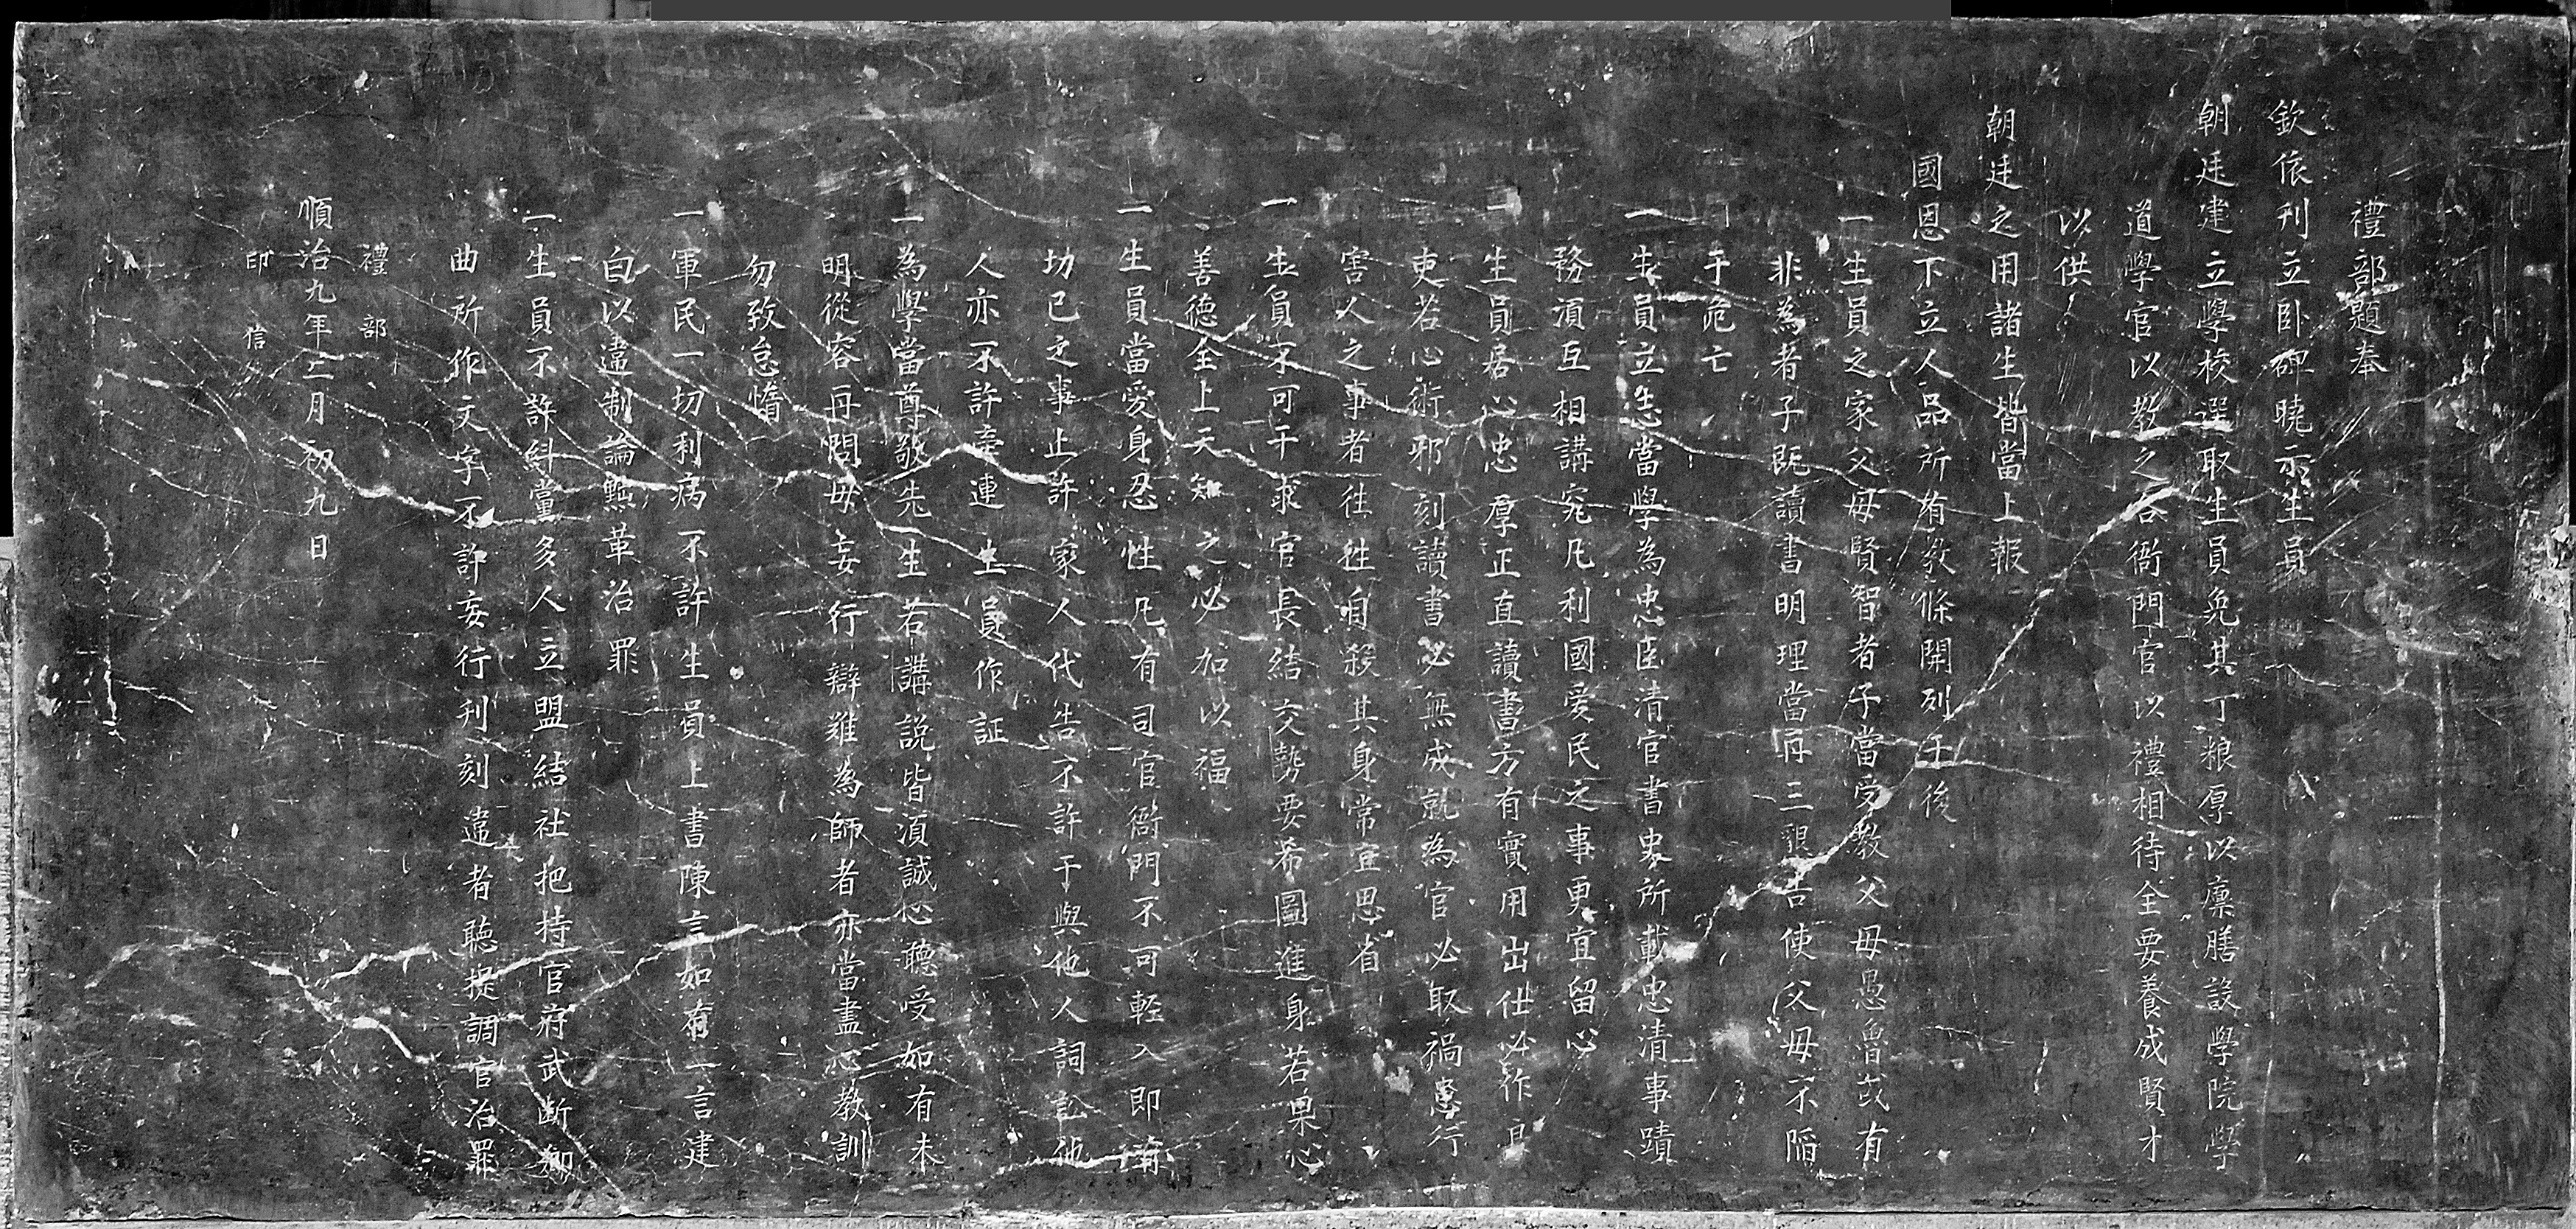 禮部題奉
欽依刊立卧碑曉示生員
朝廷建立學校選取生員免其丁粮厚以廪膳設學院學
道學官以教之各衙門官以禮相待全要養成賢才
以供
朝廷之用諸生皆當上報
國恩下立人品所有教條開列于後
一生員之家父母賢智者子當受教父母愚魯或有
非為者子既讀書明理當再三懇告使父母不陷
于危亡
一生員立志當學為忠臣清官書史所載忠清事蹟
務湏互相講究凡利國爱民之事更宜留心
一生員居心忠厚正直讀書方有實用出仕必作良
吏若心術邪刻讀書必無成就為官必取禍患行
害人之事者往往自殺其身常宜思省
一生員不可干求官長結交勢要希圖進身若果心
善德全上天知之必加以福
一生員當愛身忍性凡有司官衙門不可輕入即有
切己之事止許家人代告不許干與他人詞訟他
人亦不許牽連生員作証
一為學當尊敬先生若講説皆湏誠心聽受如有未
明從容再問毋妄行辯難為師者亦當盡心教訓
勿致怠惰
一軍民一切利病不許生員上書陳言如有一言建
白以違制論黜革治罪
一生員不許糾黨多人立盟結社把持官府武斷鄉
曲所作文字不許妄行刊刻違者聽提調官治罪
禮部
順治九年二月初九日
印信